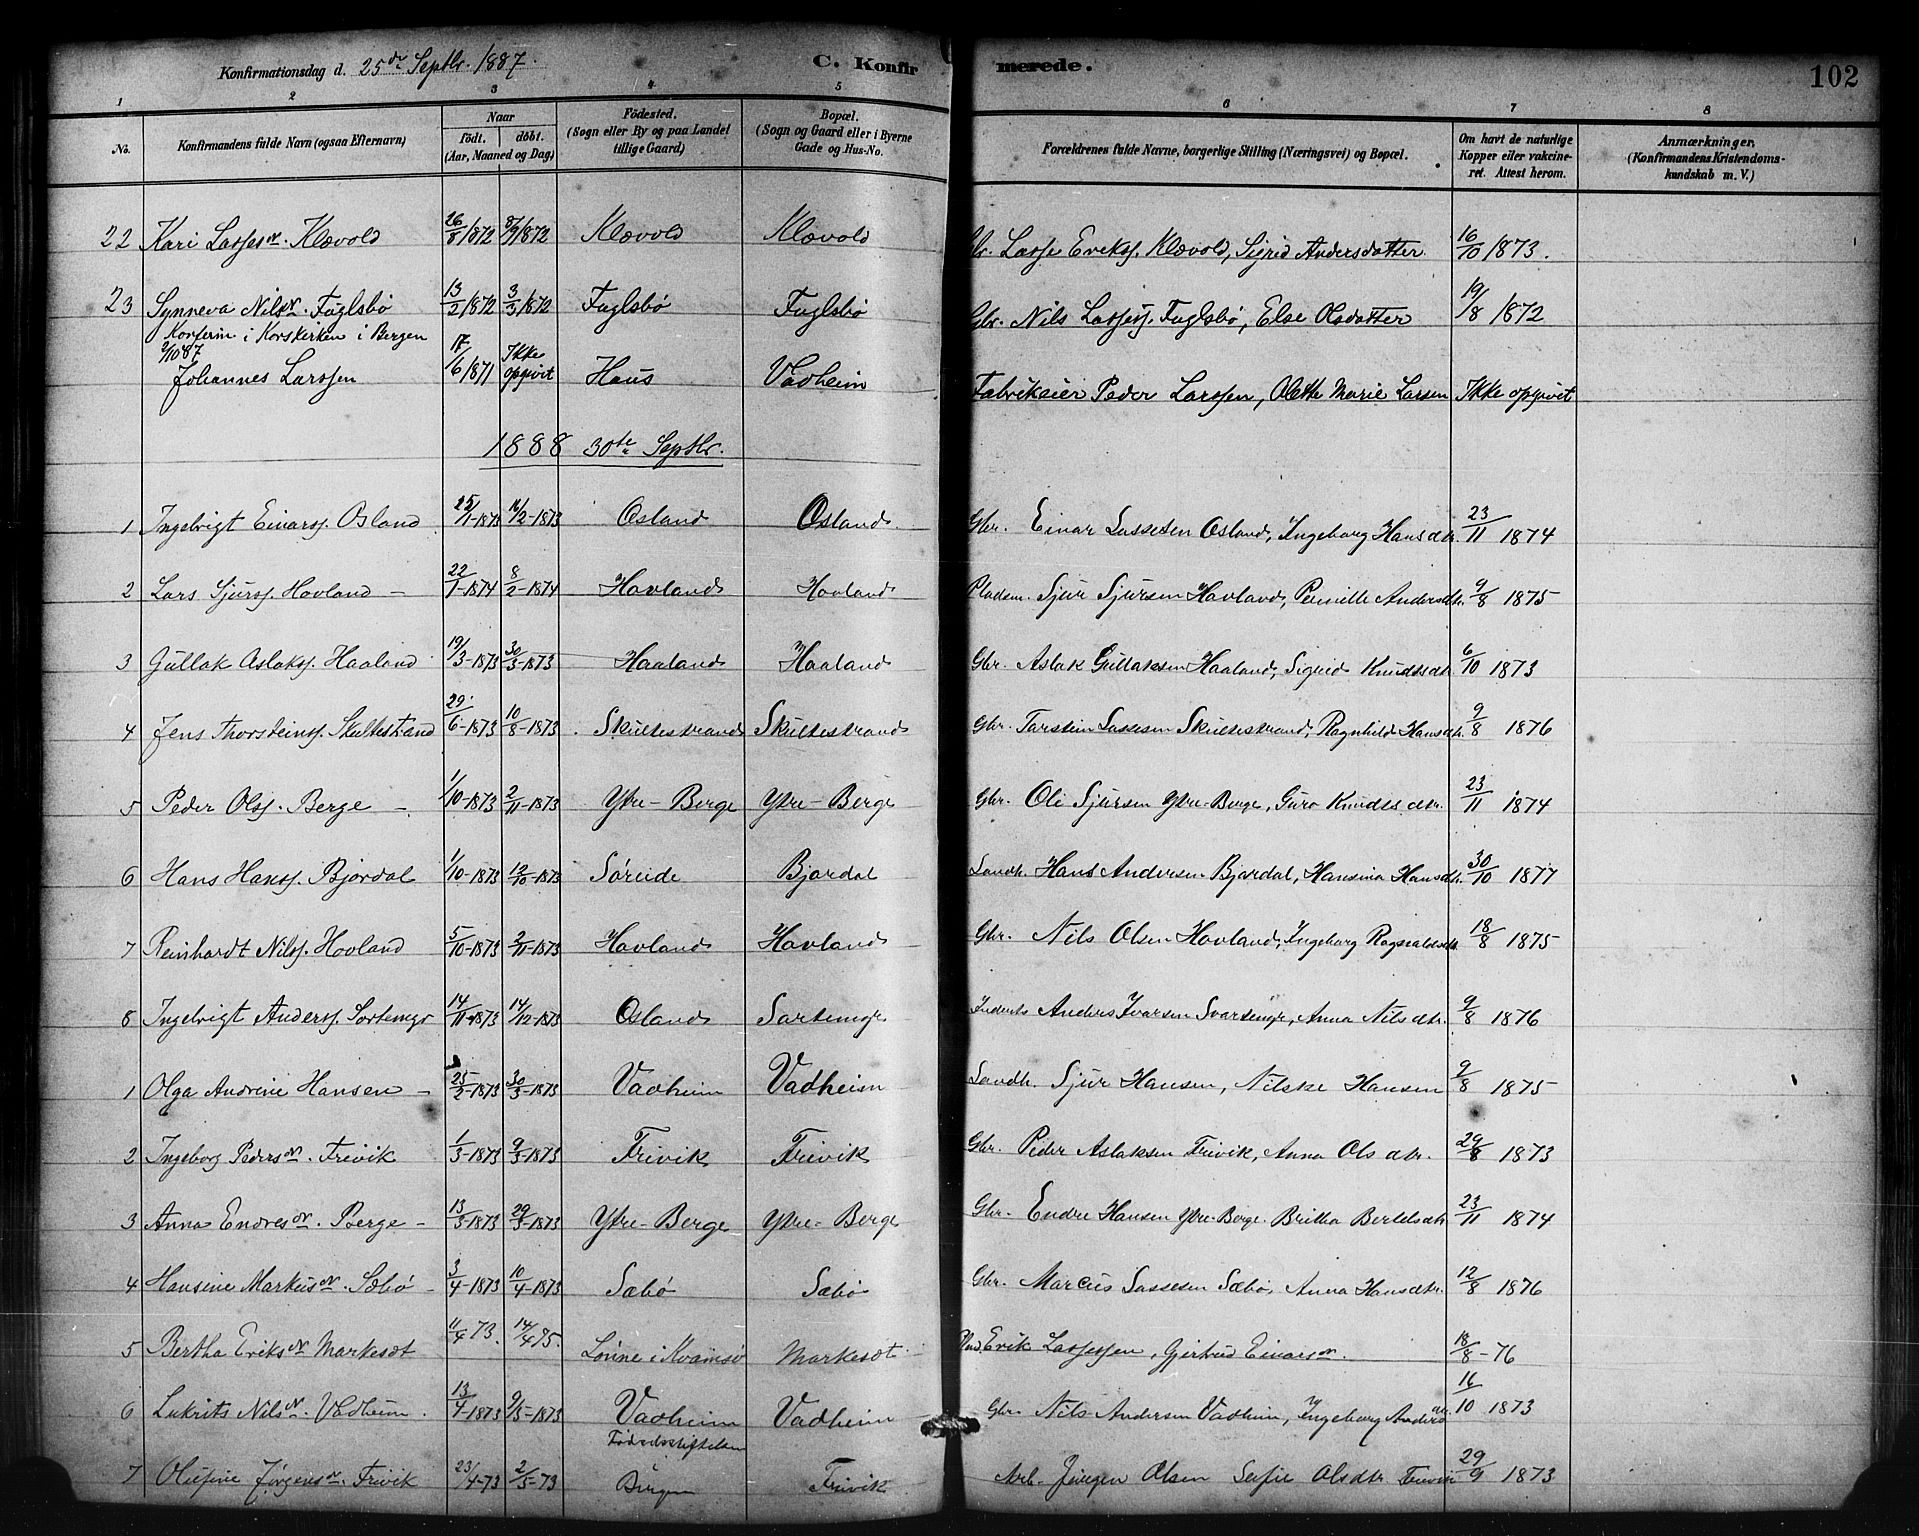 Konfirmationsdag d. 25de Septbr. 1887. C. Konfirmerede. 102
1 2 3 4 5 6 7 8
No. Konfirmandens fulde Navn (ogsaa Efternavn) Naar født. døbt. (Aar, Maaned og Dag) Fødested. (Sogn eller By og paa Landet tillige Gaard) Bopæl. (Sogn og Gaard eller i Byerne Gade og Hus-No. Forældrenes fulde Navne, borgerlige Stilling (Næringsvei) og Bopæl. Om havt de naturlige Kopper eller vakcineret. Attest herom. Anmærkninger. (Konfirmandens Kristendomskundskab m. V.)
22 Kari Lassesdr. Klævold 26/8 1872 8/9 1872 Klævold Klævold Gbr. Lasse Erikss. Klævold, Sigrid Andersdatter 16/10 1873.
23 Synneva Nilsdr. Fuglsbø 13/2 1872 3/3 1872 Fuglsbø Fuglsbø Gbr. Nils Lassess. Fuglsbø, Else Olsdatter 19/8 1872
Konferm i Korskirken i Bergen
2/10 87 Johannes Larssen 17/6 1871 Ikke opgivit Haus Vadheim Fabrikeier Peder Larssen, Olette Marie Larsen Ikke opgivit
1888 30te Septbr.
1 Ingebrigt Einarss. Osland 25/1-1873 16/2-1873 Osland Osland. Gbr. Einar Lassesen Osland, Ingeborg Hansdtr. 23/11 1874
2 Lars Sjurss. Hovland - 22/1-1874 8/2-1874 Hovland Hovland Pladsm. Sjur Sjursen Hovland, Pernille Andersdtr. 9/8 1875
3 Gullak Aslakss. Haaland 19/3-1873 30/3-1873 Haaland Haaland Gbr. Aslak Gullaksen Haaland, Sigrid Knudsdtr. 6/10 1873
4 Jens Thorsteinss. Skultestrand 29/6-1873 10/8-1873 Skultestrand Skultestrand Gbr. Torstein Lassesen Skultestrand, Ragnhild Hansdtr. 9/8 1876
5 Peder Olss. Berge - 1/10-1873 2/11-1873 Ytre-Berge Ytre-Berge Gbr. Ole Sjursen Ytre-Berge, Guro Knudsdtr. 23/11 1874
6 Hans Hanss. Bjordal 1/10-1873 12/10-1873 Søreide Bjordal Landh. Hans Andersen Bjordal, Hansina Hansdtr. 30/10 1877
7 Reinhardt Nilss. Hovland 5/10-1873 2/11-1873 Hovland Hovland Gbr. Nils Olsen Hovland, Ingeborg Ragnvaldsdtr. 18/8 1875
8 Ingebrigt Anderss. Sortemyr 14/11-1873 14/12-1873 Osland Sortemyr Inderst Anders Ivarsen Svartemyr, Anna Nilsdtr. 9/8 1876
1 Olga Andrine Hansen - 25/2-1873 30/3-1873 Vadheim Vadheim Landh. Sjur Hansen, Nilske Hansen 9/8 1875
2 Ingeborg Pedersdr. Treivik 1/3-1873 9/3-1873 Treivik Treivik Gbr. Peder Aslaksen Treivik, Anna Olsdtr. 29/8 1873
3 Anna Endresdr. Berge - 13/3-1873 29/3-1873 Ytre-Berge Ytre-Berge Gbr. Endre Hansen Ytre-Berge. Britha Bertelsdtr. 23/11 1874
4 Hansine Markusdr. Sæbø - 3/4-1873 10/4-1873 Sæbø Sæbø Gbr. Marcus Lassesen Sæbø, Anna Hansdtr. 12/8 1876
5 Bertha Eriksdr. Markesæt 11/4 73. 14/4 75. Lønne i Kvamsø Markesæt Erik Lassessen, Gjertrud Einarsdr. 18/8-76
6 Lukrits Nilsdr. Vadheim. 13/4-1873 9/5-1873 Vadheim Vadheim Gbr. Nils Andersen Vadheim, Ingeborg Andersdtr. 16/10 1873
7 Olufine Jørgensdr. Treivik 23/4-73 2/5-73 Fødselsstiftelsen Bergen Treivik Arb. Jørgen Olsen Sofie Olsdtr. Treivik 29/9 1873